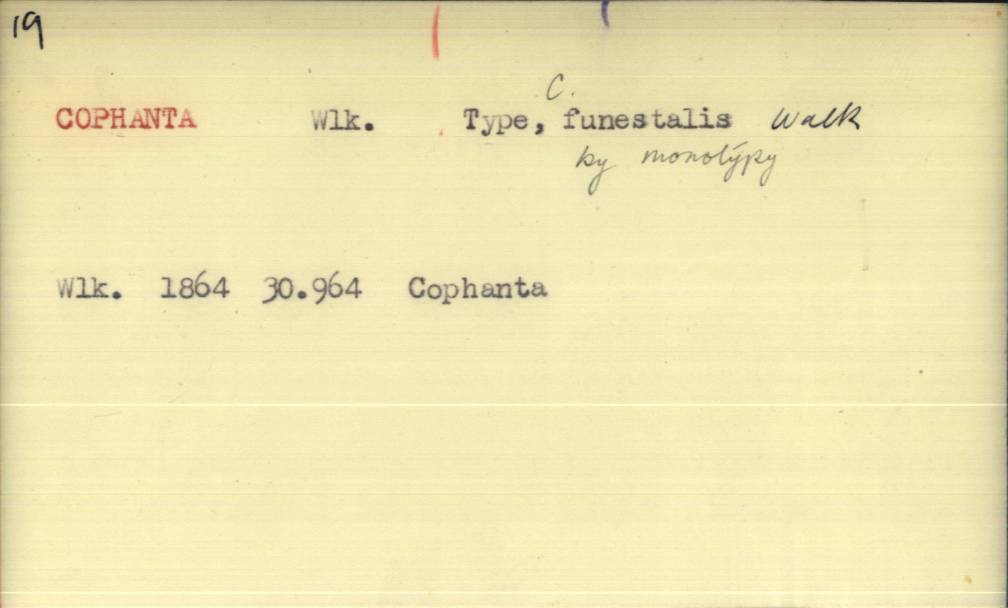 19
COPHANTA Wlk. Type, C. funestalis Walk
by monotypy
Wlk. 1864 30.964 Cophanta